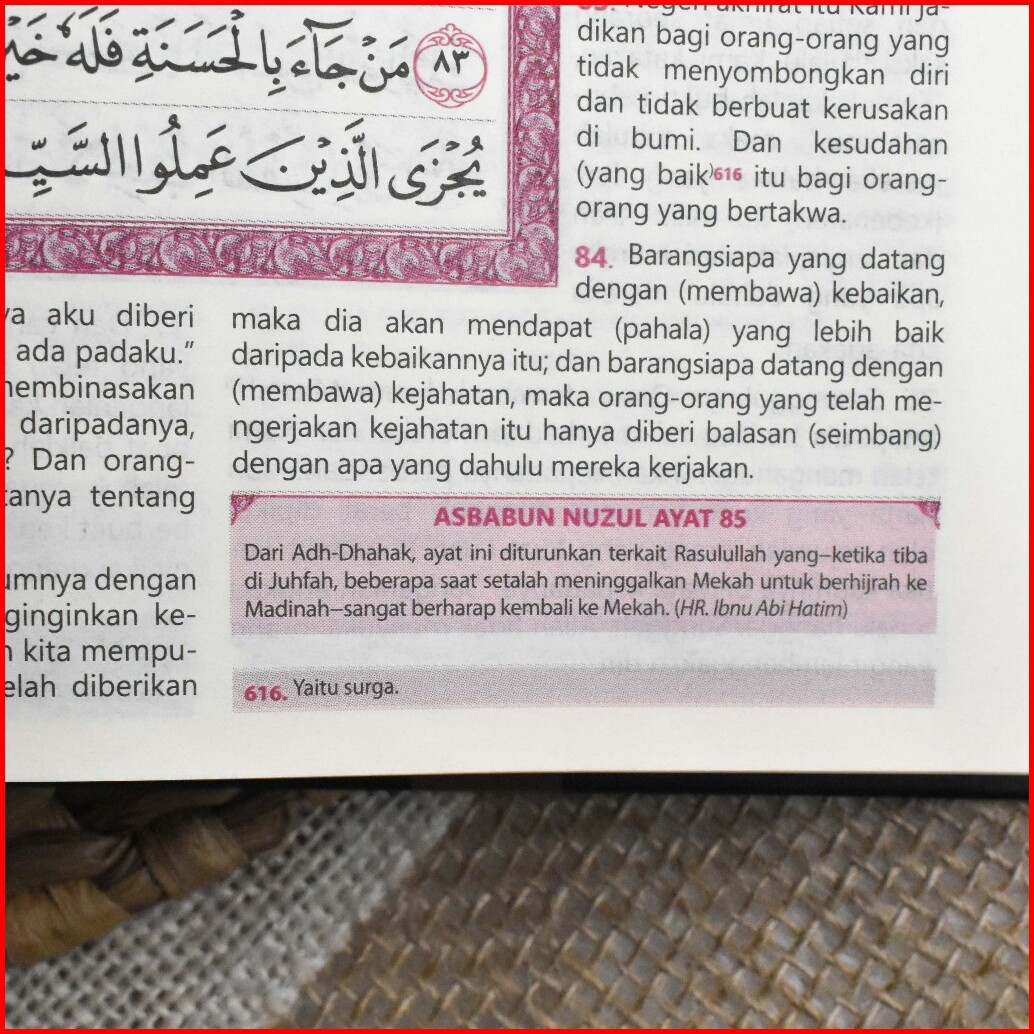 ٨٣ مَنْ جَآءَ بِالْحَسَنَةِ فَلَهٗ
يُجْزَى الَّذِيْنَ عَمِلُوا
83. Negeri akhirat itu Kami ja-
dikan bagi orang-orang yang
tidak menyombongkan diri
dan tidak berbuat kerusakan
di bumi. Dan kesudahan
(yang baik)⁶¹⁶ itu bagi orang-
orang yang bertakwa.
84. Barangsiapa yang datang
dengan (membawa) kebaikan,
maka dia akan mendapat (pahala) yang lebih baik
daripada kebaikannya itu; dan barangsiapa datang dengan
(membawa) kejahatan, maka orang-orang yang telah me-
ngerjakan kejahatan itu hanya diberi balasan (seimbang)
dengan apa yang dahulu mereka kerjakan.
aku diberi
ada padaku."
daripadanya,
? Dan orang-
tentang
dengan
ke-
kita mempu-
diberikan
ASBABUN NUZUL AYAT 85
Dari Adh-Dhahak, ayat ini diturunkan terkait Rasulullah yang—ketika tiba
di Juhfah, beberapa saat setalah meninggalkan Mekah untuk berhijrah ke
Madinah—sangat berharap kembali ke Mekah. (HR. Ibnu Abi Hatim)
616. Yaitu surga.